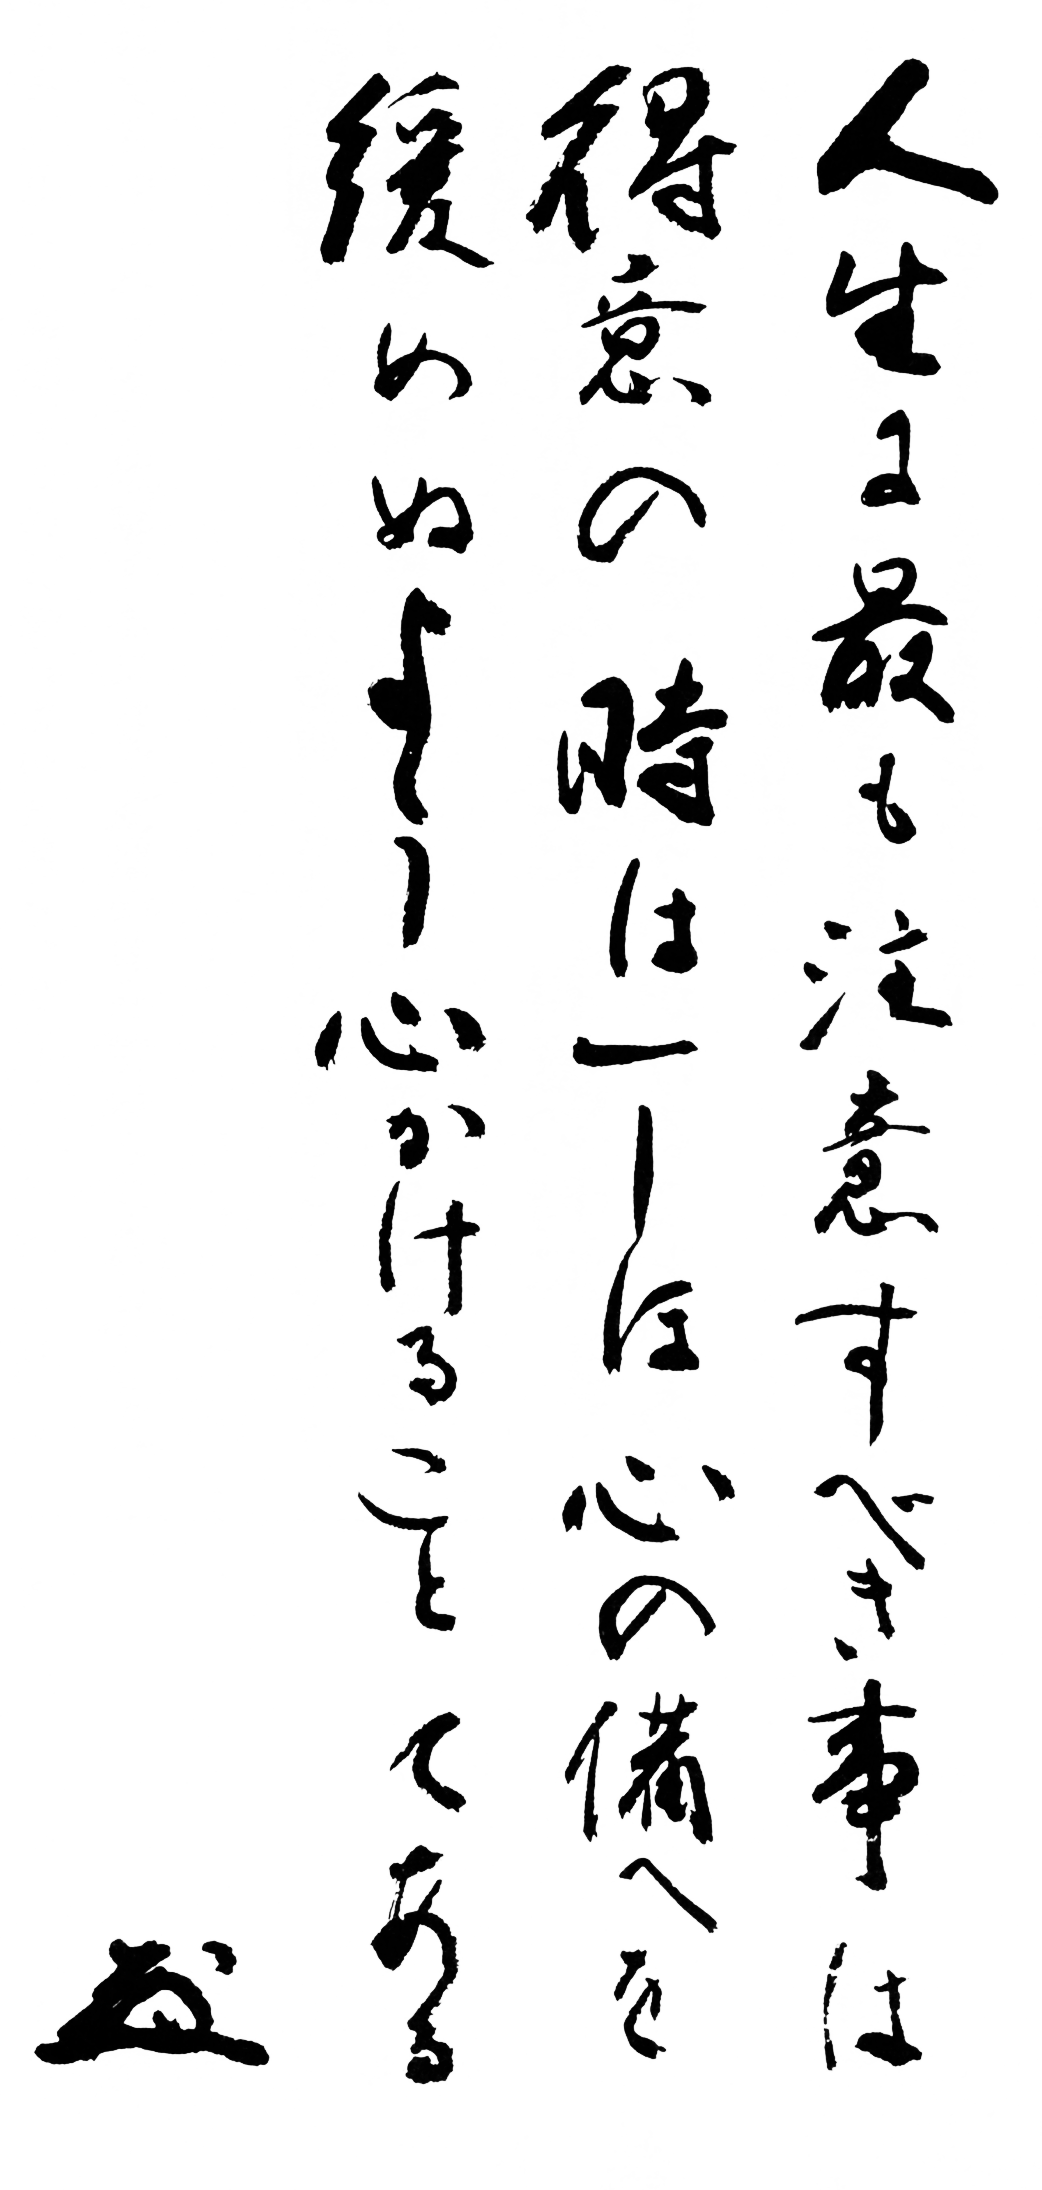 人生に最も注意すべき事は
得意の時は一しほ心の備へを
緩めぬよう心かけることてある